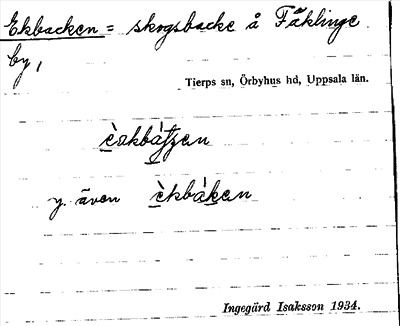 Ekbacken = skogsbacke å Fäklinge
by,
Tierps sn, Örbyhus hd, Uppsala län.
èakbàʃʒen
y. även èkbàken
Ingegärd Isaksson 1934.